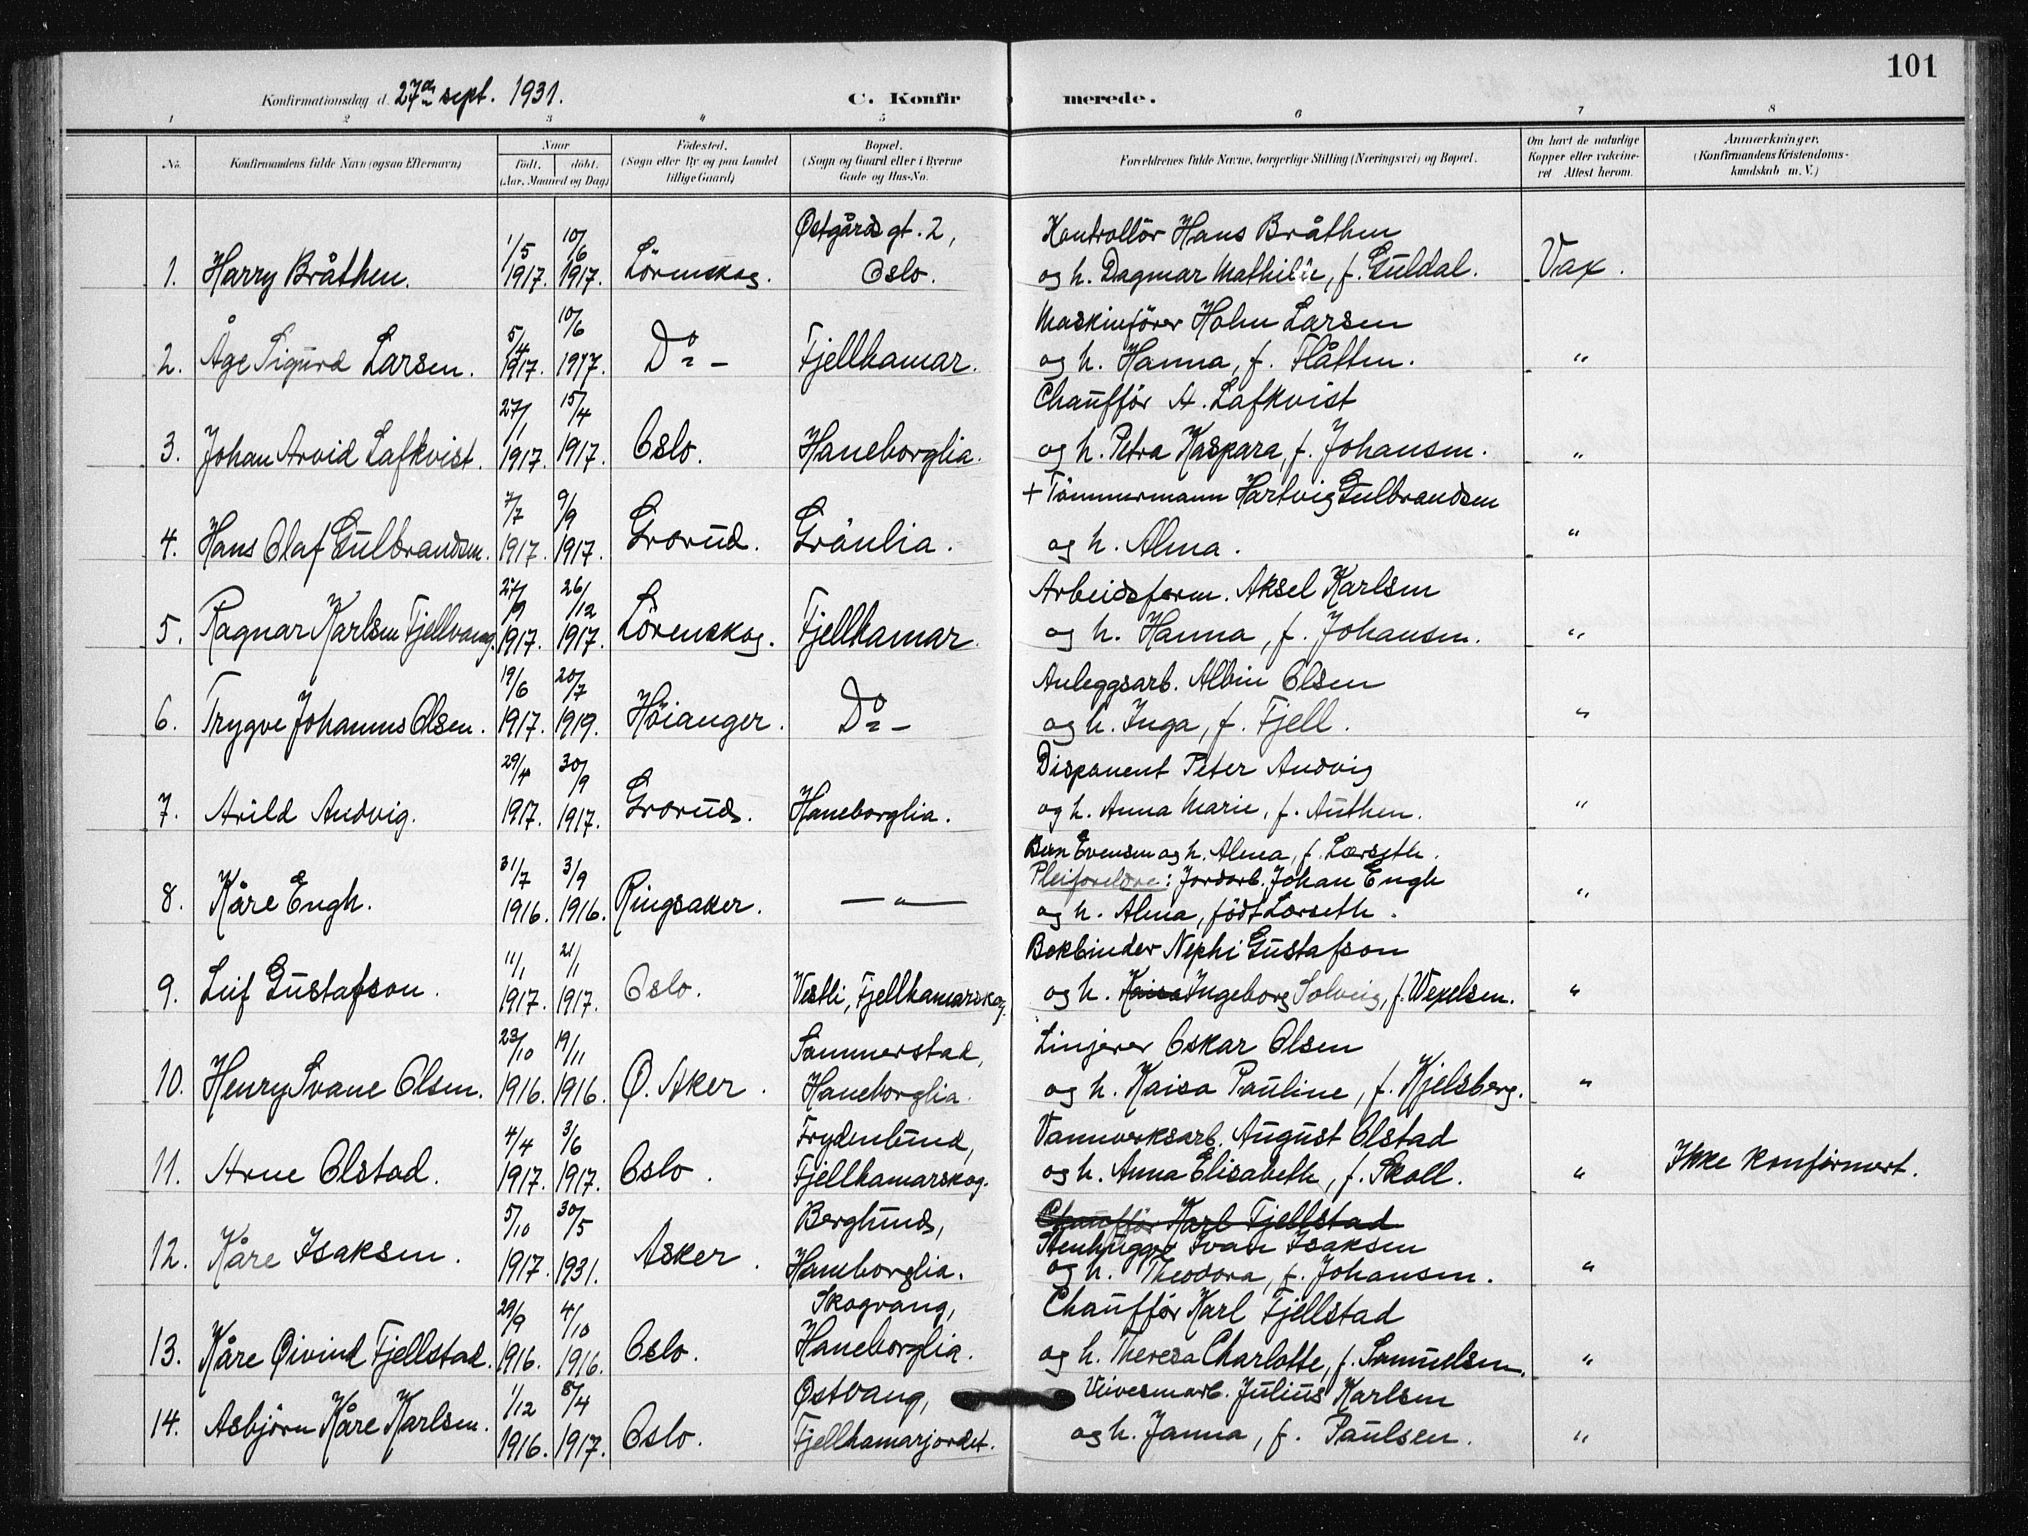 101
Konfirmationsdag d. 27de sept. 1931.
C. Konfirmerede.
1 2 3 4 5 6 7 8
No. Konfirmandens fulde Navn (ogsaa Efternavn) Naar født. døbt. (Aar, Maaned og Dag) Fødested. (Sogn eller By og paa Landet tillige Gaard) Bopæl. (Sogn og Gaard eller i Byerne Gade og Hus-No. Forældrenes fulde Navne, borgerlige Stilling (Næringsvei) og Bopæl. Om havt de naturlige Kopper eller vakcineret Attest herom. Anmærkninger. (Konfirmandens Kristendomskundskab m. V.)
1/5 10/6 Østgårds gt. 2, Kontrollör Hans Bråthen
1. Harry Bråthen. 1917. 1917. Lörenskog. Oslo. og h. Dagmar Mathilde, f. Guldal. Vax.
5/4 10/6 Maskinförer Holm Larsen
2. Åge Sigurd Larsen. 1917. 1917. Do - Fjellhamar. og h. Hanna, f. Flåtten. "
27/1 15/4 Chaufför A. Lafkvist
3. Johan Arvid Lafkvist. 1917. 1917. Oslo. Haneborglia. og h. Petra Kaspara, f. Johansen. "
7/7 9/9 + Tömmermann Hartvig Gulbrandsen
4. Hans Olaf Gulbrandsen. 1917. 1917. Grorud. Grönlia. og h. Alma. "
27/9 26/12 Arbeidsform. Aksel Karlsen
5. Ragnar Karlsen Fjellvang. 1917. 1917. Lörenskog. Fjellhamar. og h. Hanna, f. Johansen. "
19/6 20/7 Anleggsarb. Albin Olsen
6. Trygve Johannes Olsen. 1917. 1919. Höianger. Do - og h. Inga, f. Fjell. "
29/4 30/9 Disponent Peter Andvig
7. Arild Andvig. 1917. 1917. Grorud. Haneborglia. og h. Anna Marie, f. Authen. "
Evensen og h. Alma, f. Lærseth.
31/7 3/9 Pleiforeldre: Jordarb. Johan Engh
8. Kåre Engh. 1916. 1916. Ringsaker. — " — og h. Alma, født Lærseth. "
11/1 21/1 Bokbinder Nephi Gustafson
9. Leif Gustafson. 1917. 1917. Oslo. Vestli, Fjellhamarskog. og h. Kaisa Ingeborg Solveig, f. Wexelsen. "
23/10 19/11 Sommerstad, Linjerer Oskar Olsen
10. Henry Svane Olsen. 1916. 1916. Ø. Aker. Haneborglia. og h. Kaisa Pauline, f. Kjelsberg. "
4/4 3/6 Frydenlund, Vannverksarb. August Olstad
11. Arne Olstad. 1917. 1917. Oslo. Fjellhamarskog. og h. Anna Elisabeth, f. Skoll. " Ikke konfirmert.
5/10 30/5 Berglund, Chaufför Karl Fjellstad
Stenhugger Ivan Isaksen
12. Kåre Isaksen. 1917. 1931. Asker. Haneborglia. og h. Theodora, f. Johansen. "
29/9 4/10 Skogvang, Chaufför Karl Fjellstad
13. Kåre Øivind Fjellstad. 1916. 1916. Oslo. Haneborglia. og h. Theresa Charlotte, f. Samuelsen. "
1/12 8/4 Østvang, Veivesenarb. Julius Karlsen
14. Asbjörn Kåre Karlsen. 1916. 1917. Oslo. Fjellhamarjordet. og h. Janna, f. Paulsen. "